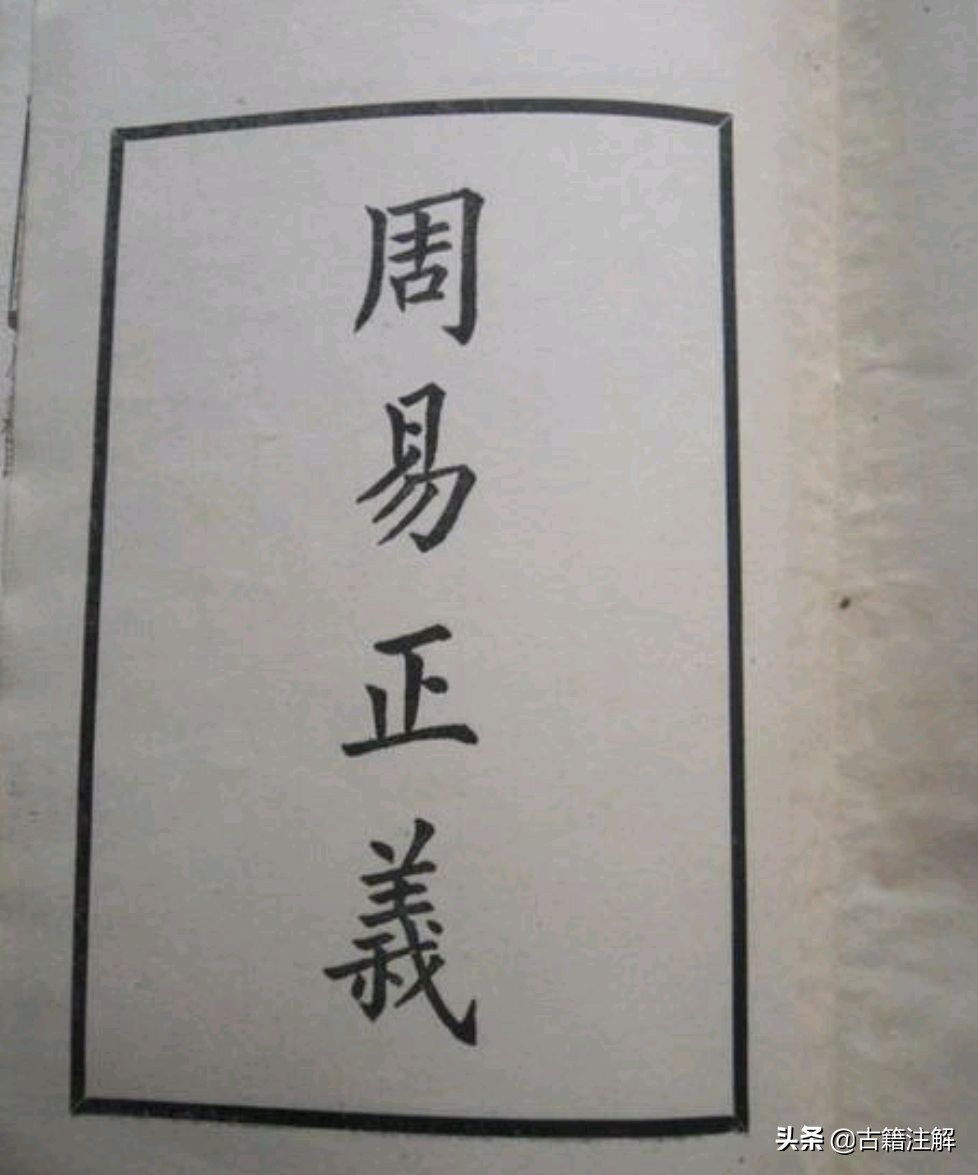 周易正義
头条 @古籍注解